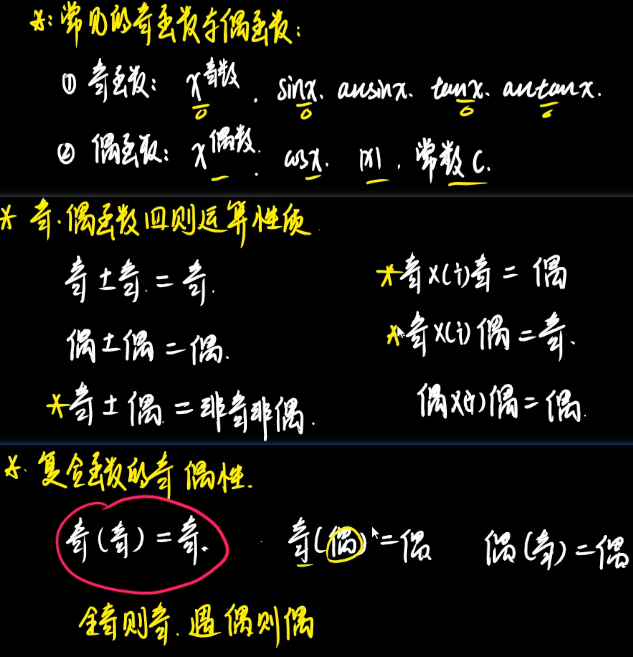 *: 常见的奇函数与偶函数:
① 奇函数: x^奇数. sinx. arcsinx. tanx. arctanx.
② 偶函数: x^偶数. cosx. |x|. 常数 C.
* 奇.偶函数四则运算性质
奇±奇=奇.
*奇×(÷)奇=偶
偶±偶=偶.
*奇×(÷)偶=奇.
*奇±偶=非奇非偶.
偶×(÷)偶=偶.
*. 复合函数的奇偶性.
奇(奇)=奇.
奇(偶)=偶
偶(奇)=偶
全奇则奇.遇偶则偶